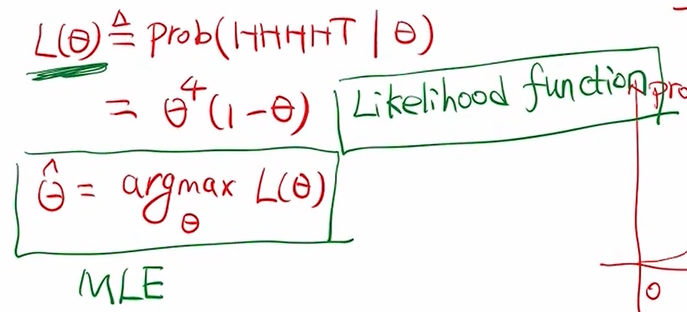 L(θ) ≜ prob(HHHHT | θ)
= θ⁴(1-θ) Likelihood function
θ̂ = argmax L(θ)
θ
MLE
pro
0